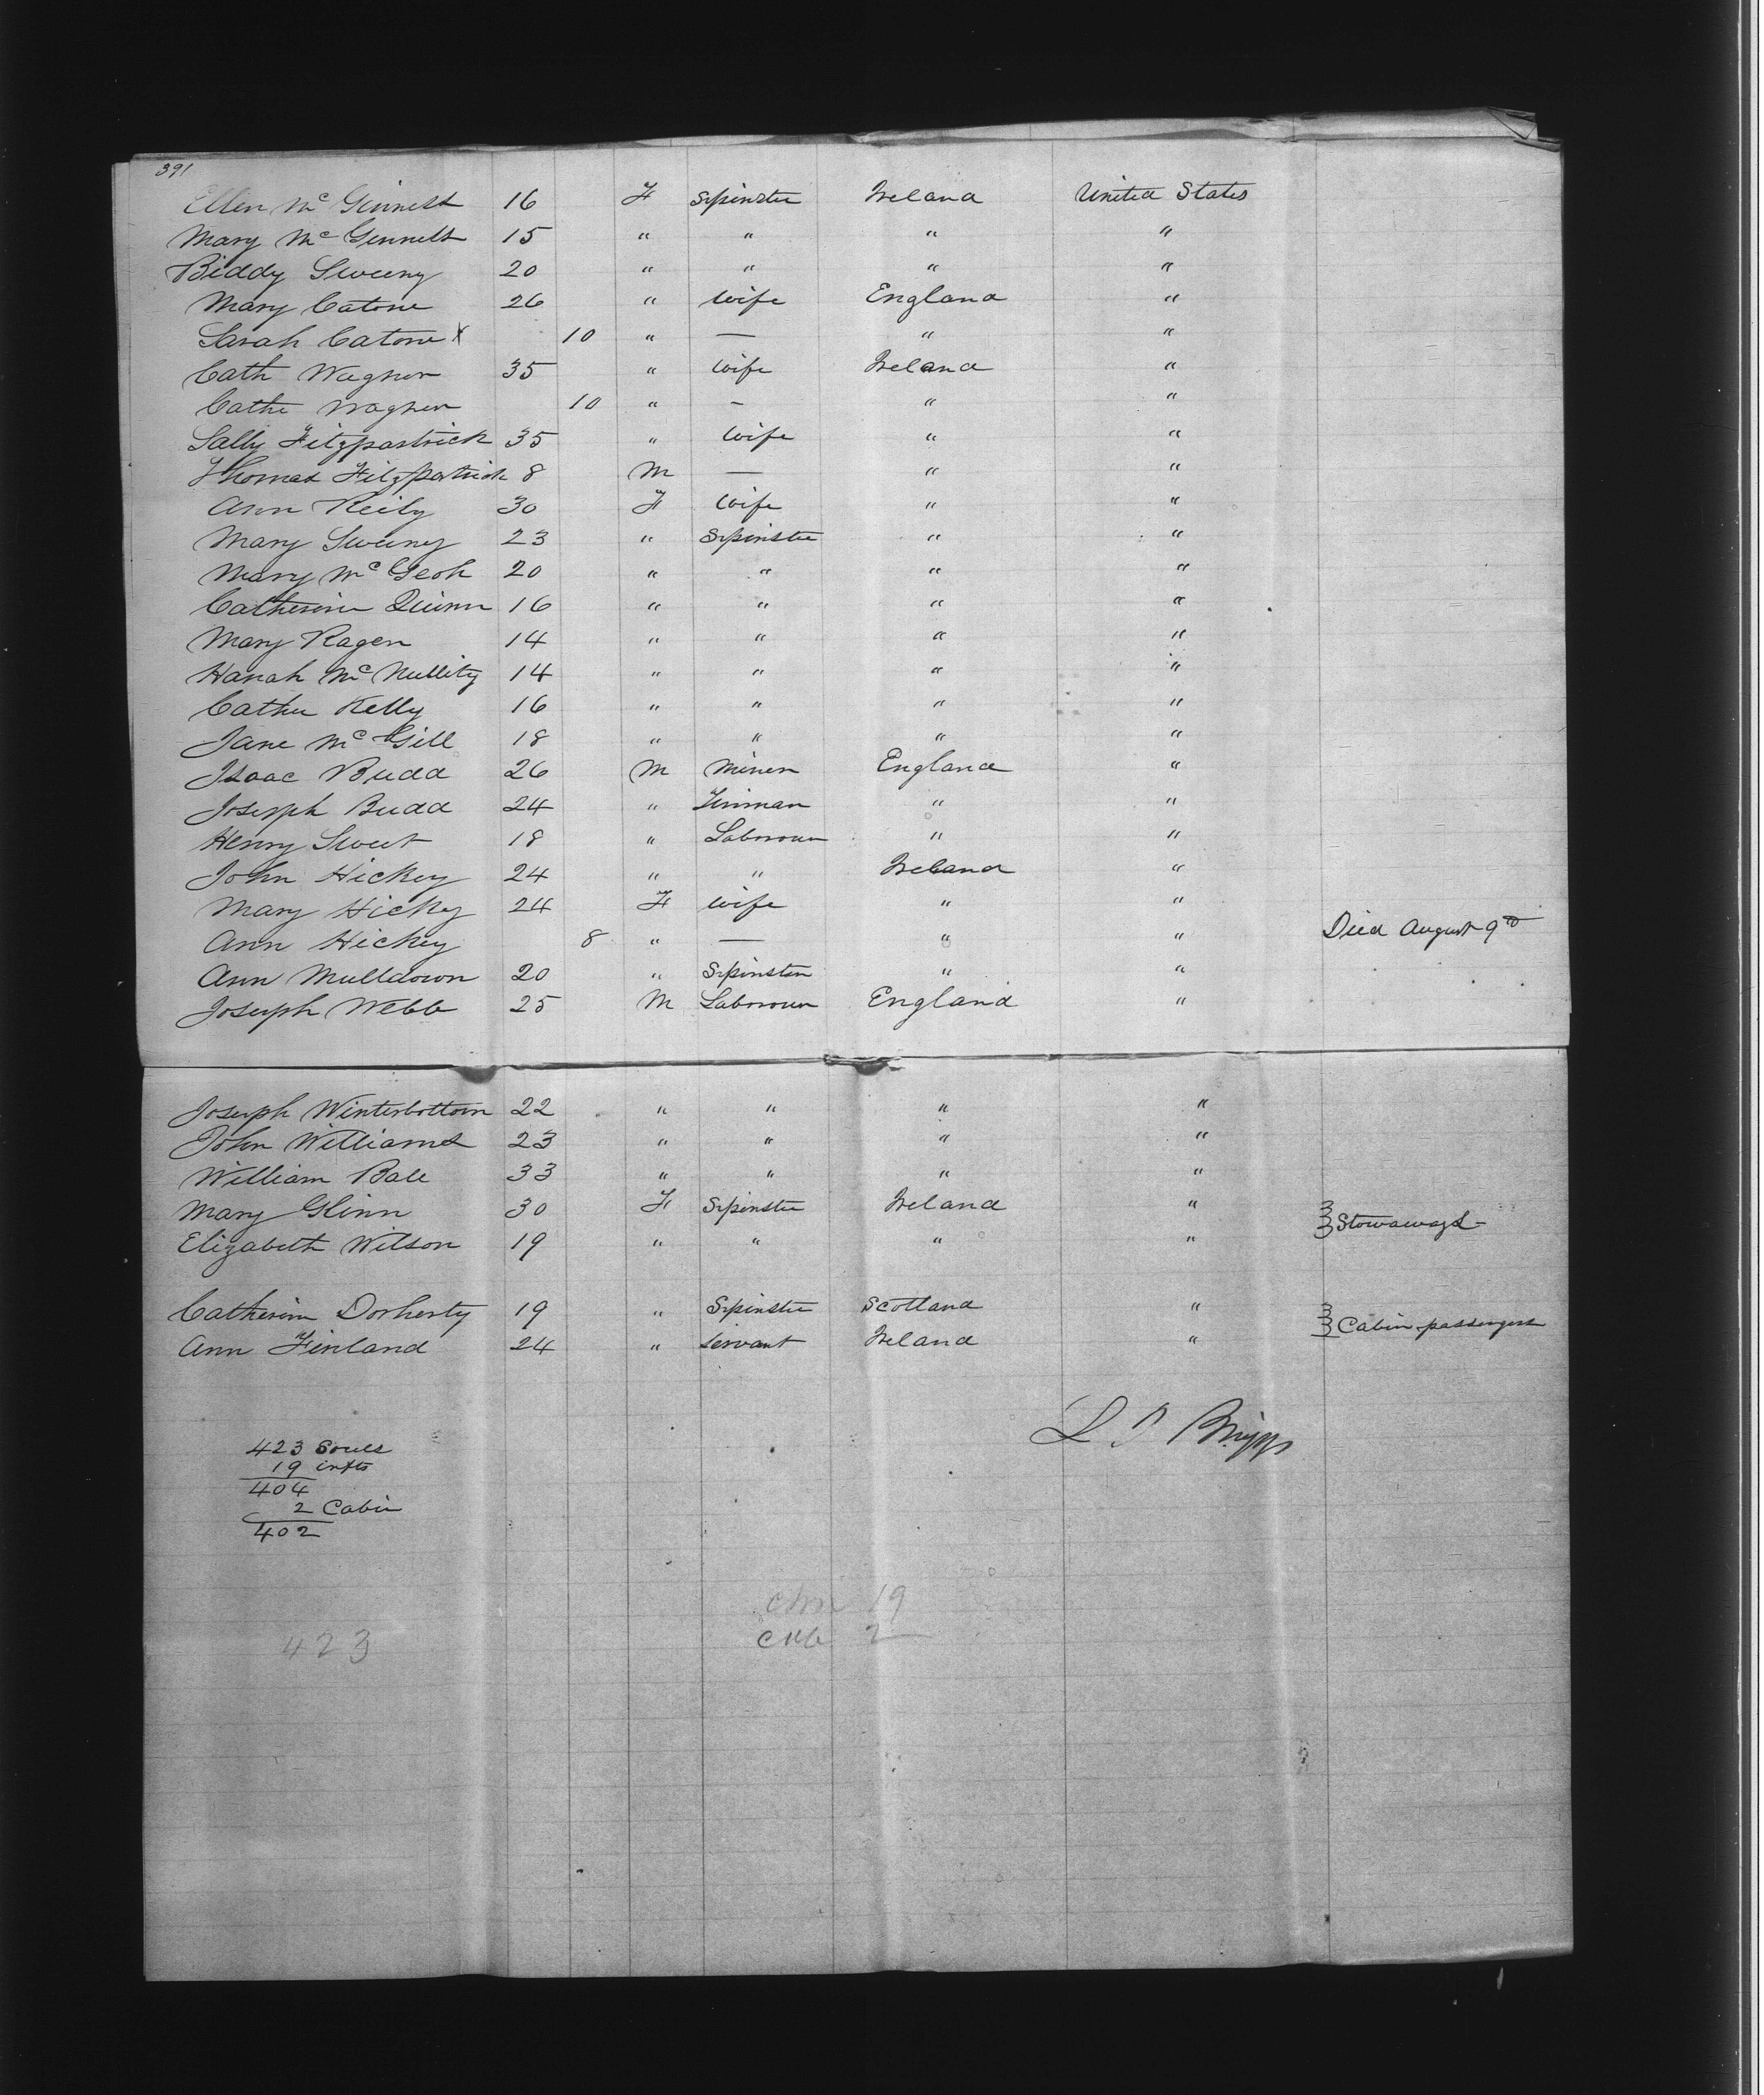 391
Ellen Mc Ginnett 16 F Spinster Ireland United States
Mary Mc Ginnett 15 " " " "
Biddy Sweeny 20 " " " "
Mary Catone 26 " Wife England "
Sarah Catone X 10 " — " "
Cath Wagner 35 " Wife Ireland "
Cathe Wagner 10 " — " "
Sally Fitzpastrick 35 " Wife " "
Thomas Fitzpatrick 8 M — " "
Ann Reily 30 F Wife " "
Mary Sweeny 23 " Spinster " "
Mary Mc Geoh 20 " " " "
Catherine Quinn 16 " " " "
Mary Ragen 14 " " " "
Hanah Mc Nullity 14 " " " "
Cathe Kelly 16 " " " "
Jane Mc Gill 18 " " " "
Isaac Budd 26 M Miner England "
Joseph Budd 24 " Tinman " "
Henry Sweet 18 " Labourer " "
John Hickey 24 " " Ireland "
Mary Hicky 24 F Wife " "
Ann Hickey 8 " — " " Died August 9th
Ann Mulldown 20 " Spinster " "
Joseph Webb 25 M Labourer England "
Joseph Winterbottom 22 " " " "
John Williams 23 " " " "
William Bale 33 " " " "
Mary Glinn 30 F Spinster Ireland "
Stowaways
Elizabeth Wilson 19 " " " "
Catherin Dorherty 19 " Spinster Scotland "
Cabin passengers
Ann Finland 24 " Servant Ireland "
L Briggs
423 Souls
19 infts
404
2 Cabin
402
19
2
423